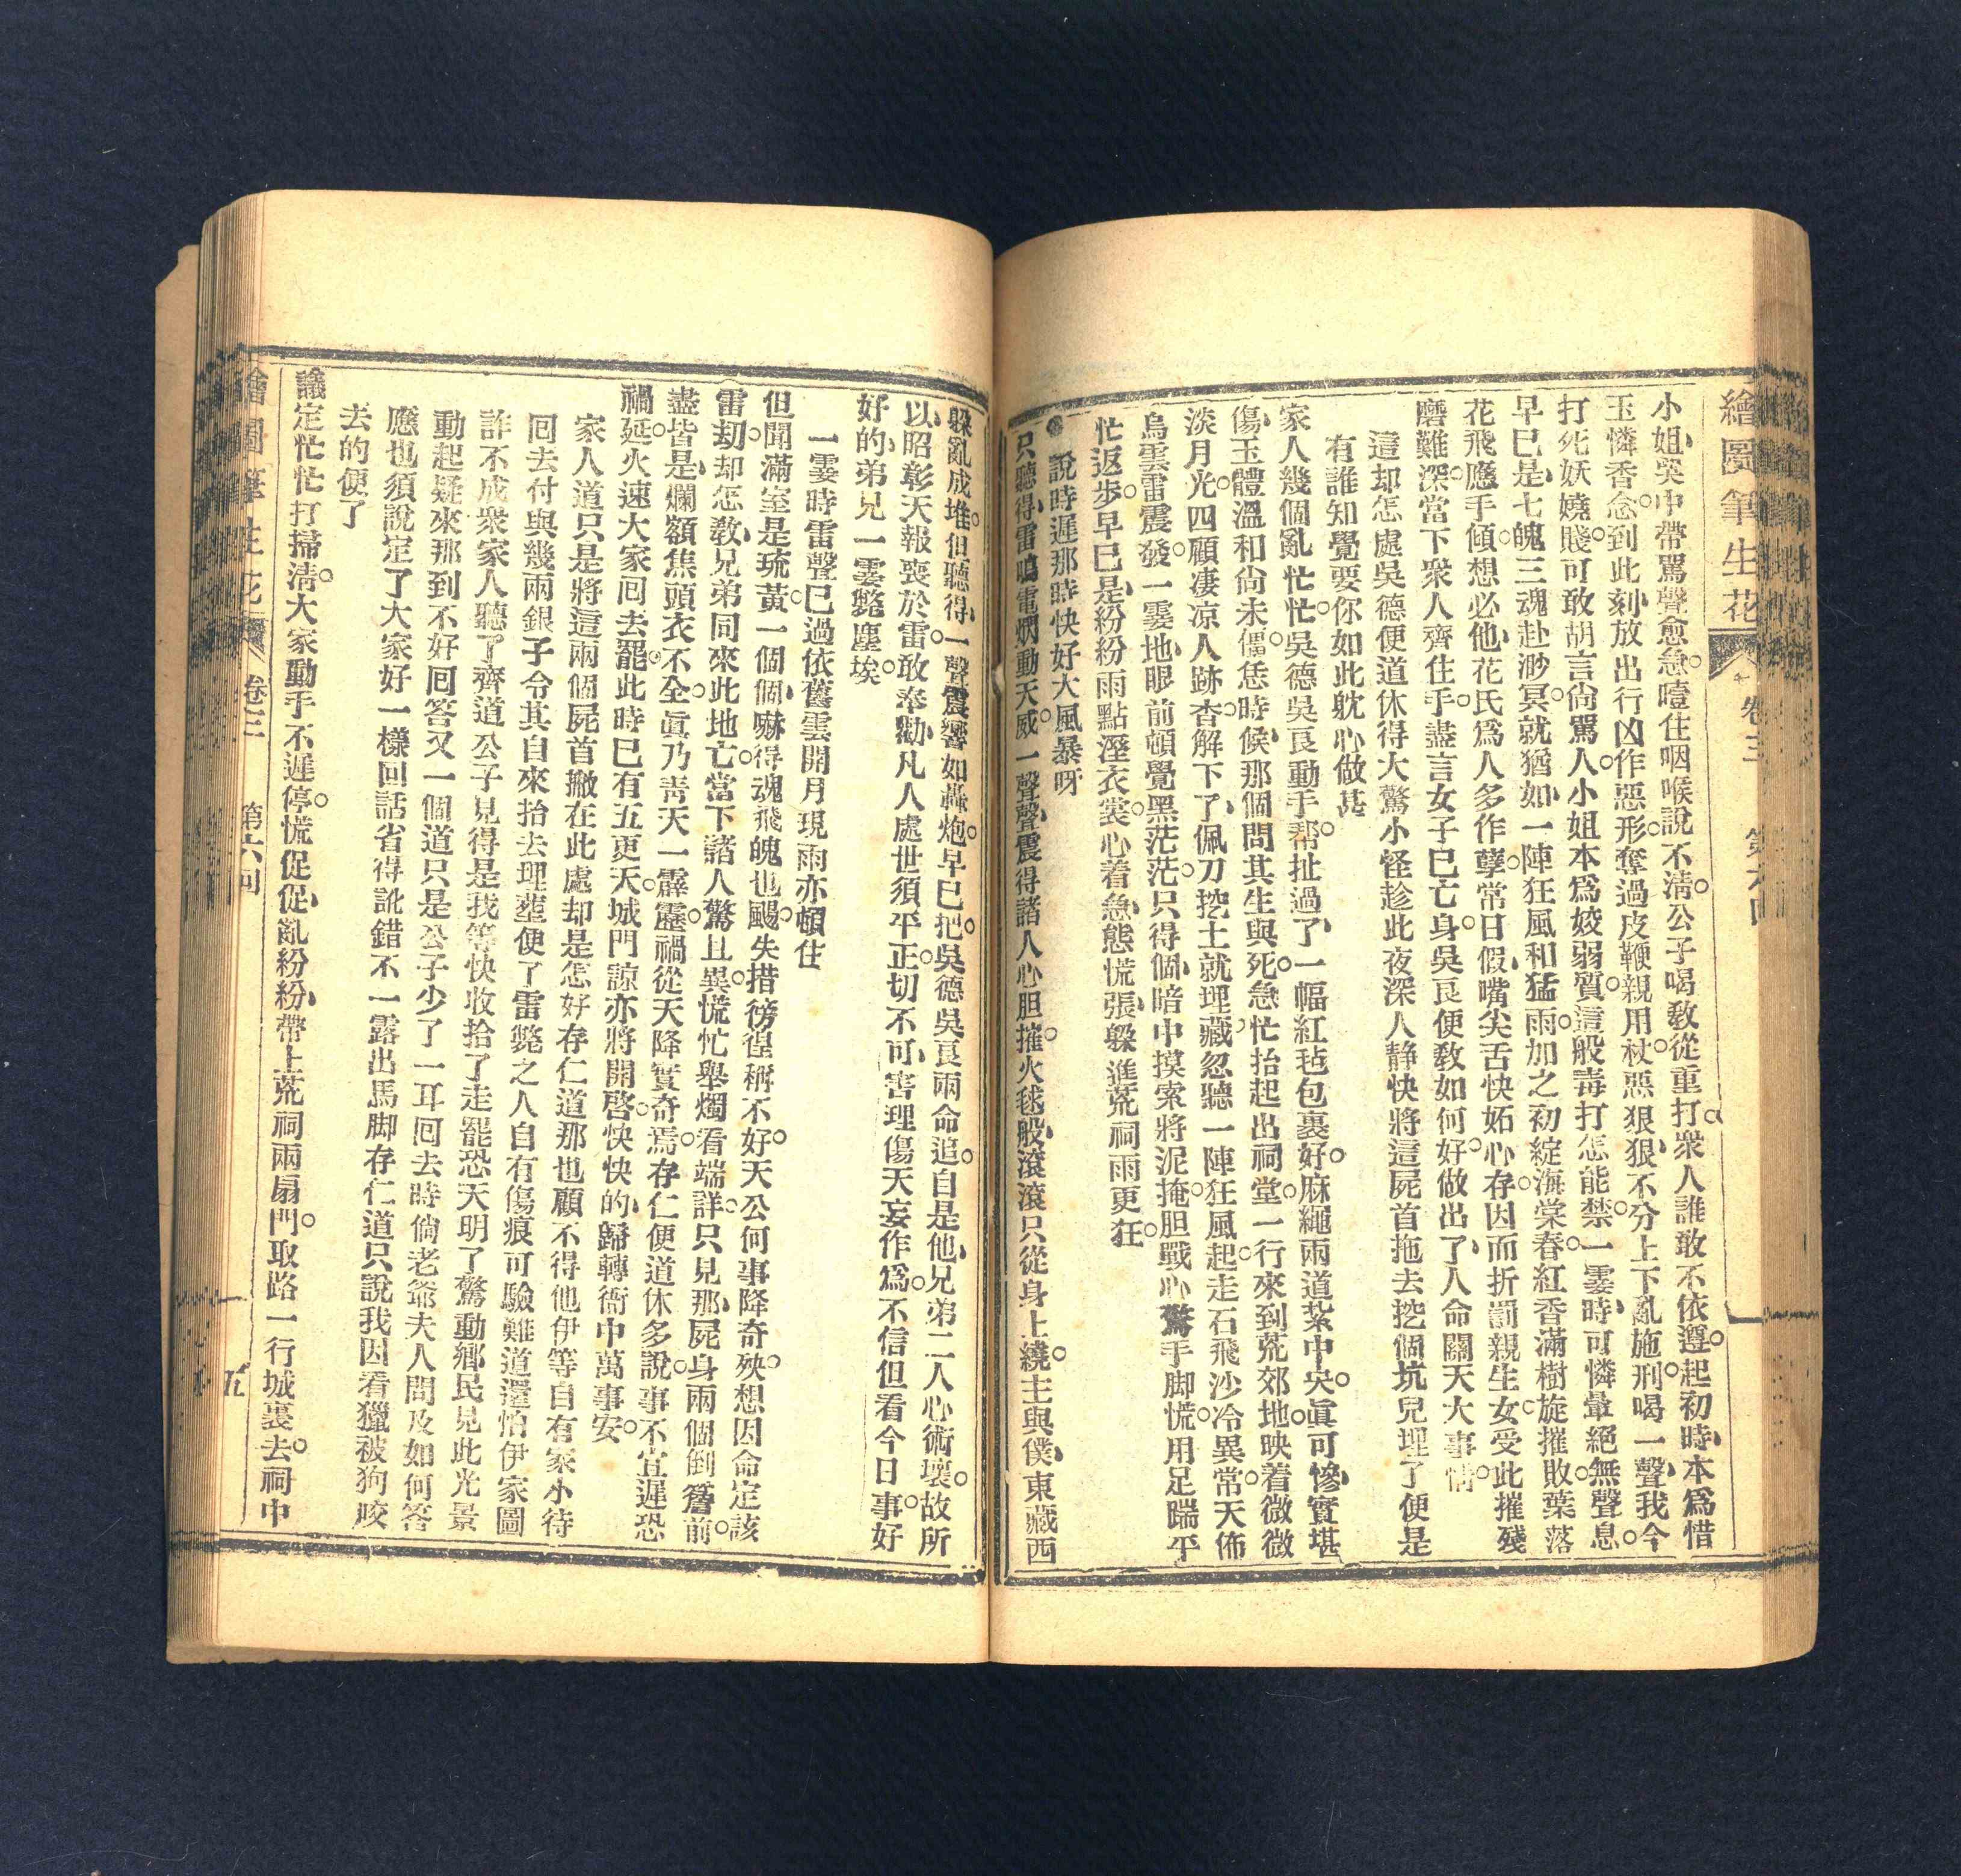 繪圖筆生花 卷三 第六回
小姐吳中帶罵聲愈急。噎住咽喉說不淸。公子喝敎從重打。衆人誰敢不依遵。起初時、本爲惜
玉憐香念。到此刻、放出行凶作惡形。奪過皮鞭親用杖。惡狠狠、不分上下亂施刑。喝一聲、我今
打死妖嬈賤。可敢胡言尙罵人。小姐本爲姣弱質。這般毒打怎能禁。一霎時、可憐暈絕無聲息。
早已是、七魄三魂赴渺冥。就猶如、一陣狂風和猛雨。加之初綻海棠春。紅香滿樹旋摧敗。葉落
花飛應手傾。想必他、花氏爲人多作孽。常日假、嘴尖舌快妬心存。因而折罰親生女。受此摧殘
磨難深。當下衆人齊住手。盡言女子已亡身。吳良便敎如何好。做出了、人命關天大事情。
這却怎處吳德便道休得大驚小怪趁此夜深人静快將這屍首拖去挖個坑兒埋了便是
有誰知覺要你如此躭心做甚
家人幾個亂忙忙。吳德吳良動手帮。扯過了、一幅紅毡包裹好。麻繩兩道紮中央。眞可慘、實堪
傷。玉體溫和尙未僵。恁時候、那個問其生與死。急忙抬起出祠堂。一行來到荒郊地。映着微微
淡月光。四顧凄凉人跡杳。解下了、佩刀挖土就埋藏。忽聽一陣狂風起。走石飛沙冷異常。天佈
烏雲雷震發。一霎地、眼前頓覺黑茫茫。只得個、暗中摸索將泥掩。胆戰心驚手脚慌。用足踹平
忙返步。早已是、紛紛雨點溼衣裳。心着急、態慌張、躱進荒祠雨更狂。
說時遲那時快好大風暴呀
只聽得、雷鳴電爓動天威。一聲聲、震得諸人心胆摧。火毬般、滾滾只從身上繞。主與僕、東藏西
躱亂成堆。但聽得、一聲震響如轟炮。早已把、吳德吳良兩命追。自是他、兄弟二人心術壞。故所
以、昭彰天報喪於雷。敢奉勸、凡人處世須平正。切不可、害理傷天妄作爲。不信但看今日事。好
好的、弟兄一霎斃塵埃。
一霎時雷聲已過依舊雲開月現雨亦頓住
但聞滿室是琉黃。一個個、嚇得魂飛魄也颺。失措徬徨稱不好。天公何事降奇殃。想因命定該
雷劫。却怎敎、兄弟同來此地亡。當下諸人驚且異。慌忙舉燭看端詳。只見那、屍身兩個倒簷前。
盡皆是、爛額焦頭衣不全。眞乃靑天一霹靂。禍從天降實奇焉。存仁便道休多說。事不宜遲恐
禍延。火速大家回去罷。此時已有五更天。城門諒亦將開啓。快快的、歸轉衙中萬事安。
家人道只是將這兩個屍首撇在此處却是怎好存仁道那也顧不得他伊等自有家小待
回去付與幾兩銀子令其自來抬去理塟便了雷斃之人自有傷痕可驗難道還怕伊家圖
詐不成衆家人聽了齊道公子見得是我等快收拾了走罷恐天明了驚動鄉民見此光景
動起疑來那到不好回答又一個道只是公子少了一耳回去時倘老爺夫人問及如何答
應也須說定了大家好一樣回話省得訛錯不一露出馬脚存仁道只說我因看獵被狗咬
去的便了
議定忙忙打掃淸。大家動手不遲停。慌促促、亂紛紛、帶上荒祠兩扇門。取路一行城裏去。祠中
繪圖筆生花 卷三 第六回 五